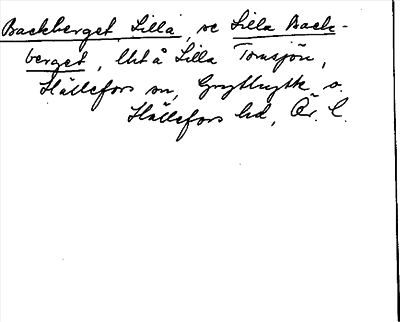 Backberget, Lilla, se Lilla Back-
berget, lht å Lilla Tomsjön,
Hällefors sn, Grythytte o.
Hällefors hd, Ör. l.